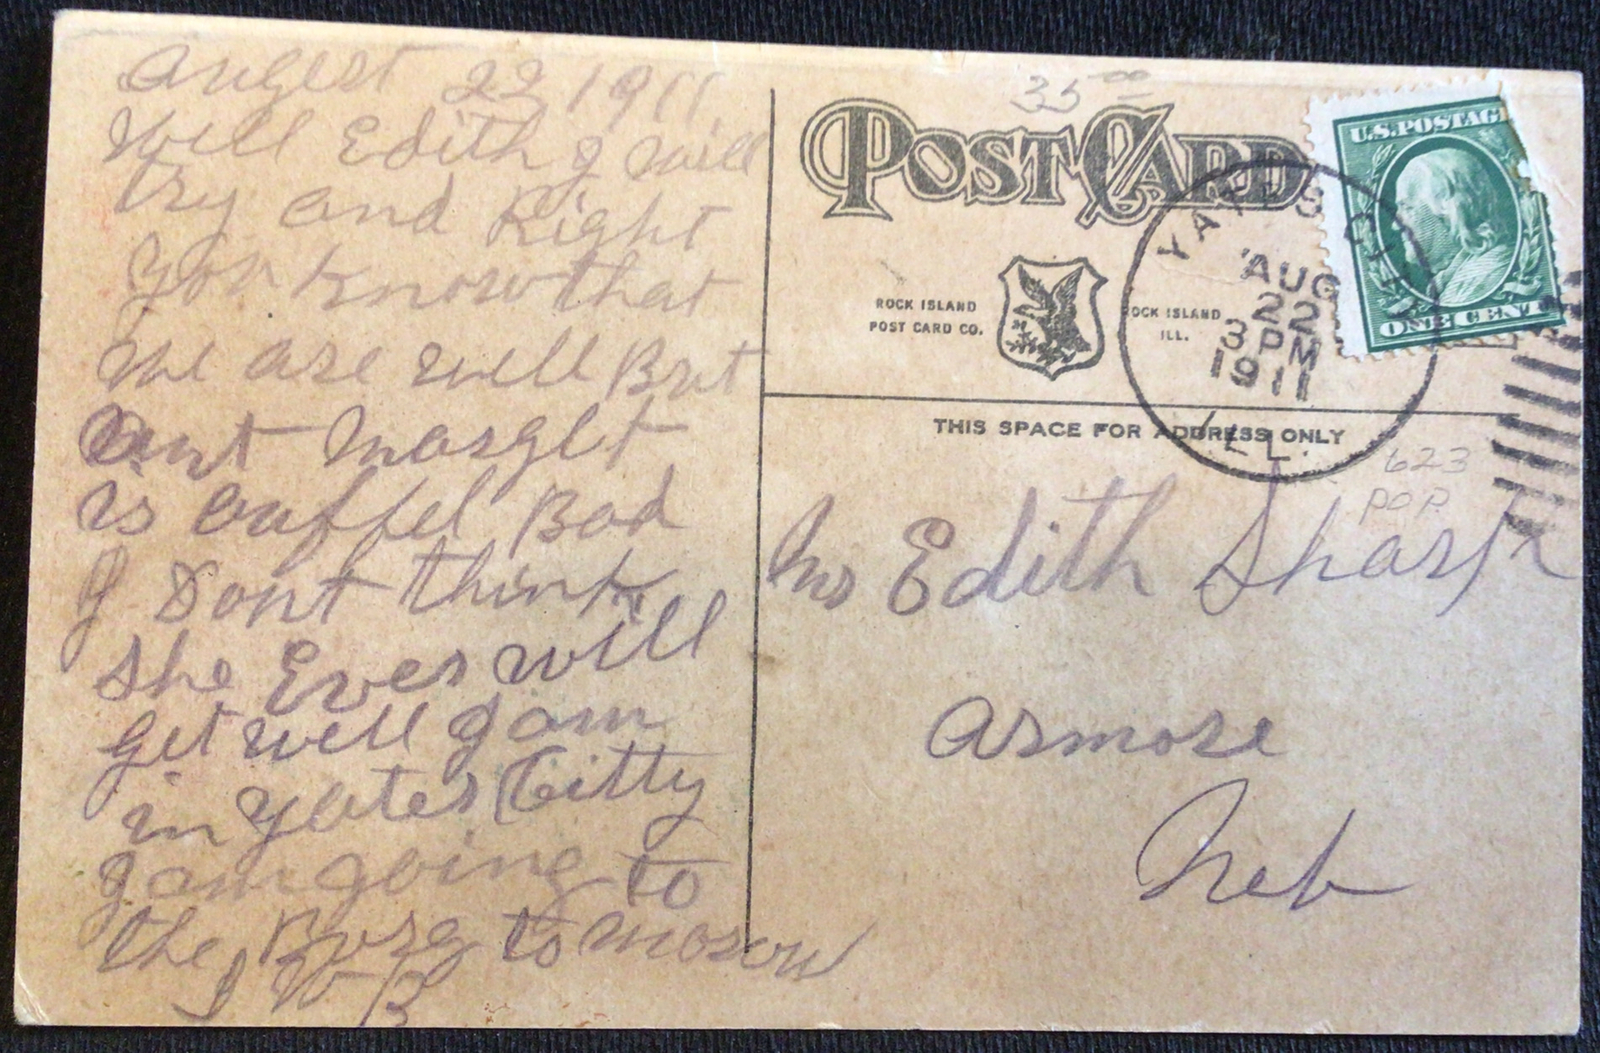 Augest 22 1911
Well Edith I Will
try and Right
you know that
We are well But
Aunt Masglt
is auffel Bad
I Dont think
she Ever will
get well I am
in Yates Citty
I am going to
the Burg to morow
J W B
35 00
POST CARD
ROCK ISLAND
POST CARD CO.
ROCK ISLAND
ILL.
U.S. POSTAG
ONE CENT
YATES CITY
AUG
22
3 PM
1911
ILL.
THIS SPACE FOR ADDRESS ONLY
623
POP.
Mrs Edith Sharp
Armore
Neb